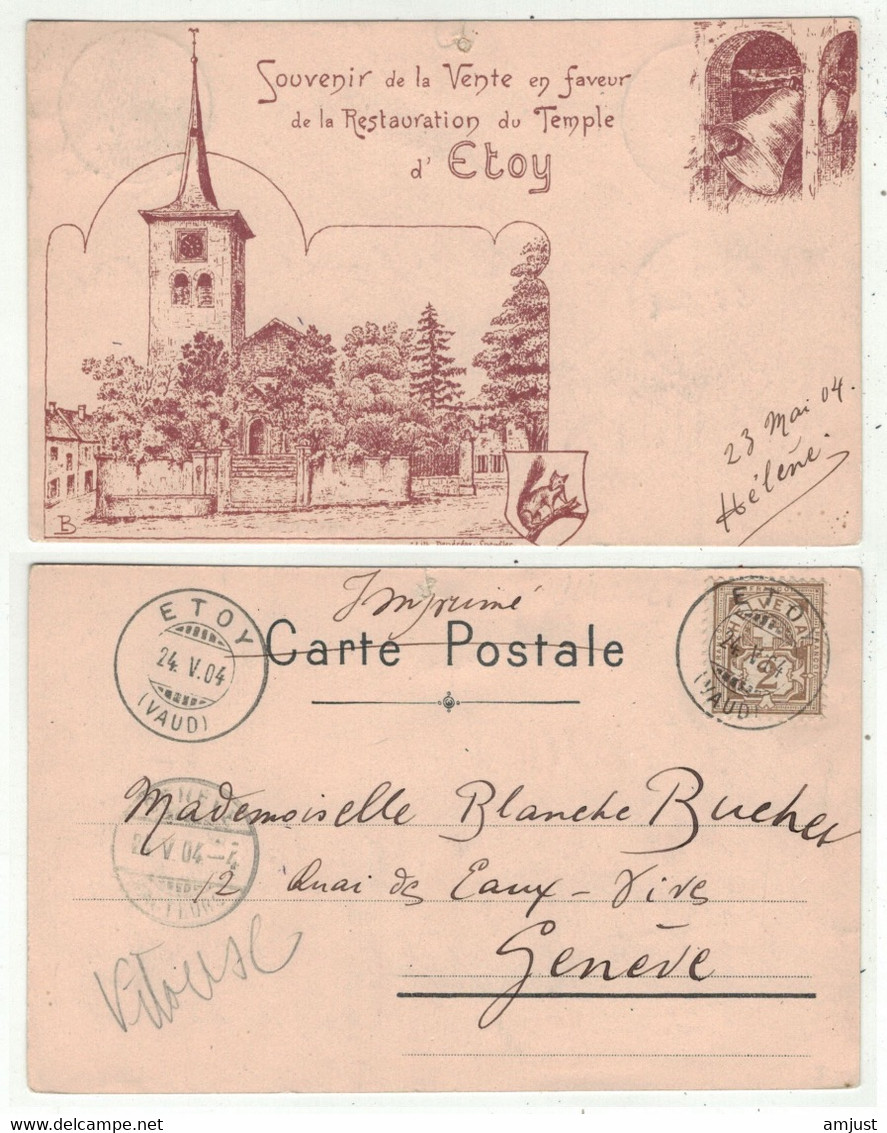 Souvenir de la Vente en faveur
de la Restauration du Temple
d' Etoy
23 Mai 04.
Hélène.
B
Imprimé
Carte Postale
ETOY
24. V. 04
(VAUD)
HELVETIA
2
ETOY
24. V. 04
(VAUD)
V. 04 – 4
Mademoiselle Blanche Bucher
12 Quai des Eaux-Vives
Genève
amjust